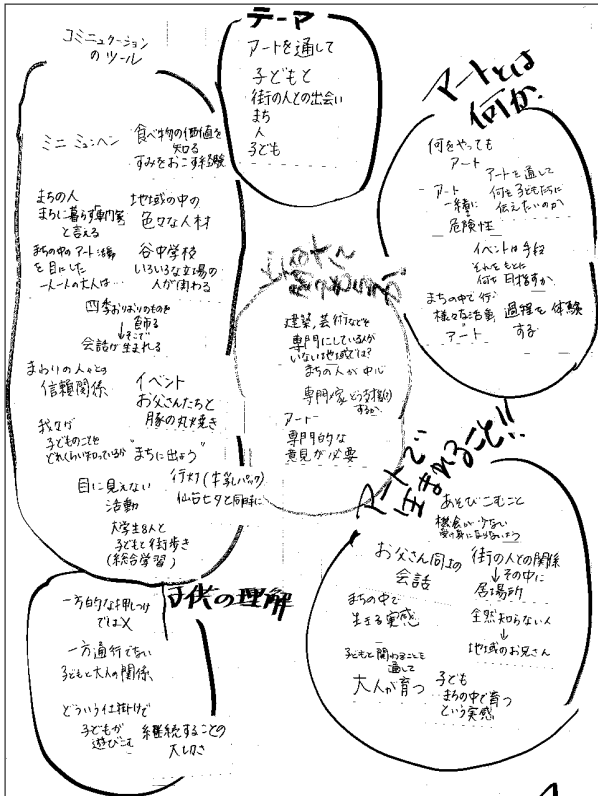 テーマ
アートを通して
子どもと
街の人との出会い
まち
人
子ども
コミニュケーション
のツール
ミニ ミュンヘン
食べ物の価値を
知る
すみをおこす経験
まちの人
まちに暮らす専門家
と言える
地域の中の
色々な人材
まちの中のアート活動
を目にした
一人一人の大人は…
谷中学校
いろいろな立場の
人が関わる
四季おりおりのものを
飾る
↓そこで
会話が生まれる
まわりの人々との
信頼関係
イベント
お父さんたちと
豚の丸焼き
我々が
子どものことを
どれくらい知っているか
"まちに出よう"
目に見えない
活動
行灯(牛乳パック)
仙台七夕と同時に
大学生8人と
子どもと街歩き
(総合学習)
アートとは
何か
何をやっても
アート
アートを通して
何を子どもたちに
伝えたいのか
アート
一緒に
危険性
イベントは手段
それをもとに
何を目指すか
まちの中で行う
様々な活動
アート
過程を体験
する
建築、芸術などを
専門にしている人が
いない地域では?
まちの人が中心
専門家どう支援
するか
アート
専門的な
意見が必要
アートで
生まれること!!
あそびこむこと
機会が少ない
受け身にならないよう
お父さん同士の
会話
街の人との関係
↓その中に
居場所
まちの中で
生きる実感
全然知らない人
↓
地域のお兄さん
子どもと関わることを
通して
大人が育つ
子ども
まちの中で育つ
という実感
子供の理解
一方的な押しつけ
では×
一方通行でない
子どもと大人の関係
どういう仕掛けで
子どもが
遊びこむ
継続することの
大切さ